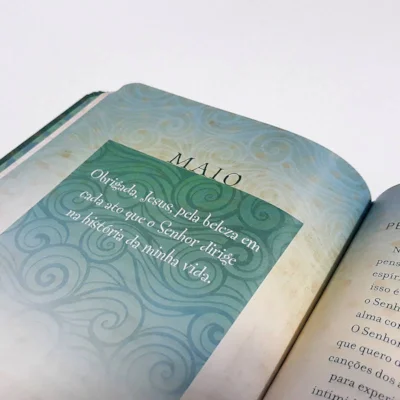 MAIO
Obrigada, Jesus, pela beleza em
cada ato que o Senhor dirige
na história da minha vida.
pens
espir
isso é
o Senh
alma co
O Senhor
que quero d
canções dos a
para exper
intimi